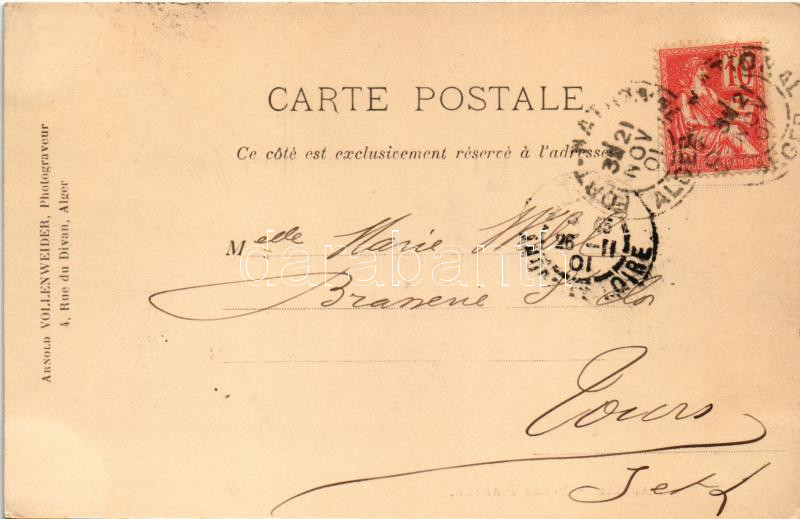 CARTE POSTALE
Ce côté est exclusivement réservé à l'adresse
POSTES
10
RÉPUBLIQUE FRANÇAISE
FORT-NATIONAL
3E
21
NOV
01
ALGER
Melle Marie
26-11
01
LOIRE
Brasserie
Tours
I et L
Arnold VOLLENWEIDER, Photograveur
4, Rue du Divan, Alger
darabanth